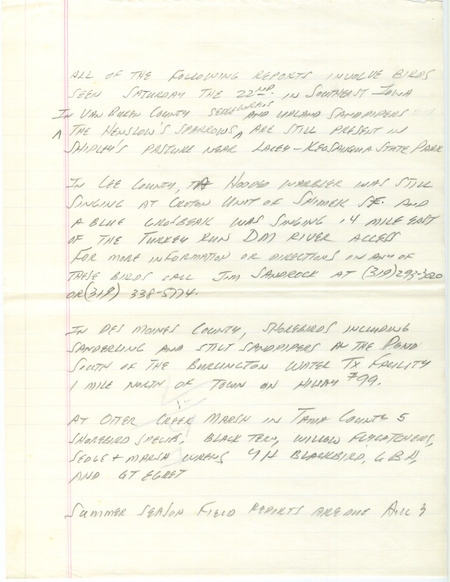 ALL OF THE FOLLOWING REPORTS INVOLVE BIRDS
SEEN SATURDAY THE 22ND. IN SOUTHEAST IOWA
IN VAN BUREN COUNTY SEDGE WRENS AND UPLAND SANDPIPERS
^ THE HENSLOW'S SPARROWS ^ ARE STILL PRESENT IN
SHIDLEY'S PASTURE NEAR LACEY-KEOSAUQUA STATE PARK
IN LEE COUNTY, A HOODED WARBLER WAS STILL
SINGING AT CROTON UNIT OF SHIMEK S.F. AND
A BLUE GROSBEAK WAS SINGING 1/4 MILE EAST
OF THE TURKEY RUN DM RIVER ACCESS
FOR MORE INFORMATION OR DIRECTIONS ON ANY OF
THESE BIRDS CALL JIM SANDROCK AT (319)
OR (319) 338-5774.
IN DES MOINES COUNTY, SHOREBIRDS INCLUDING
SANDERLING AND STILT SANDPIPERS AT THE POND
SOUTH OF THE BURLINGTON WATER TX FACILITY
1 MILE NORTH OF TOWN ON HIWAY #99.
AT OTTER CREEK MARSH IN TAMA COUNTY 5
SHOREBIRD SPECIES, BLACK TERN, WILLOW FLYCATCHERS,
SEDGE + MARSH WRENS, YH BLACKBIRD, GBH,
AND GT EGRET
SUMMER SEASON FIELD REPORTS ARE DUE AUG 3